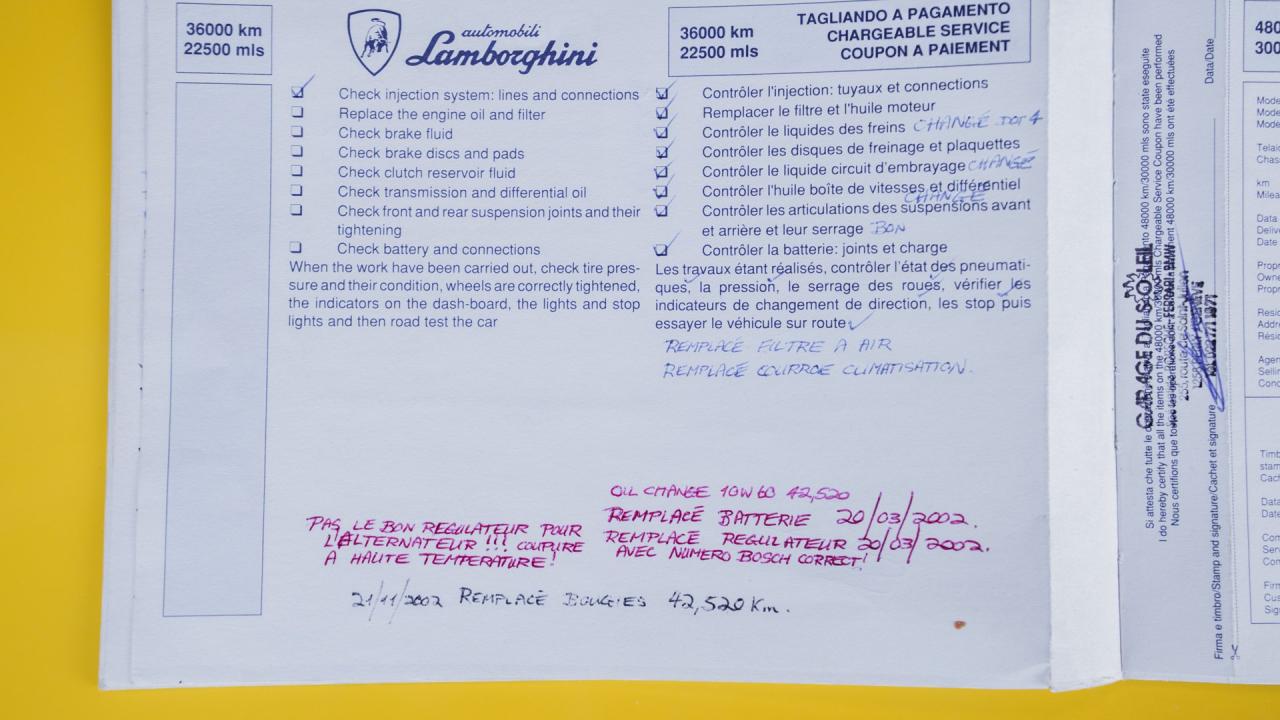 36000 km
22500 mls
automobili
Lamborghini
36000 km
22500 mls
TAGLIANDO A PAGAMENTO
CHARGEABLE SERVICE
COUPON A PAIEMENT
Check injection system: lines and connections
Replace the engine oil and filter
Check brake fluid
Check brake discs and pads
Check clutch reservoir fluid
Check transmission and differential oil
Check front and rear suspension joints and their
tightening
Check battery and connections
When the work have been carried out, check tire pres-
sure and their condition, wheels are correctly tightened,
the indicators on the dash-board, the lights and stop
lights and then road test the car
Contrôler l'injection: tuyaux et connections
Remplacer le filtre et l'huile moteur
Contrôler le liquides des freins CHANGÉ DOT 4
Contrôler les disques de freinage et plaquettes
Contrôler le liquide circuit d'embrayage CHANGÉ
Contrôler l'huile boîte de vitesses et différentiel
CHANGÉ
Contrôler les articulations des suspensions avant
et arrière et leur serrage BON
Contrôler la batterie: joints et charge
Les travaux étant réalisés, contrôler l'état des pneumati-
ques, la pression, le serrage des roues, vérifier les
indicateurs de changement de direction, les stop puis
essayer le véhicule sur route
REMPLACÉ FILTRE A AIR
REMPLACÉ COURROE CLIMATISATION.
OIL CHANGE 10W60 42,520
REMPLACÉ BATTERIE 20/03/2002.
REMPLACÉ REGULATEUR 20/03/2002.
AVEC NUMERO BOSCH CORRECT!
PAS LE BON REGULATEUR POUR
L'ALTERNATEUR!!! COUPURE
A HAUTE TEMPERATURE!
21/11/2002 REMPLACÉ BOUGIES 42,520 Km.
Si attesta che tutte le 48000 km/30000 mls sono state eseguite
I do hereby certify that all the items on the 48000 km/30000 mls Chargeable Service Coupon have been performed
Nous certifions que 48000 km/30000 mls ont été effectuées
GARAGE DU SOLEIL
FERRARI - BMW
Data/Date
Firma e timbro/Stamp and signature/Cachet et signature
480
300
Mode
Mode
Mode
Telaio
Chas
km
Milea
Data
Deliv
Date
Propr
Owne
Propr
Resid
Addre
Résid
Agen
Sellin
Conc
Timb
stam
Cach
Data
Date
Com
Serv
Com
Firm
Cus
Sig